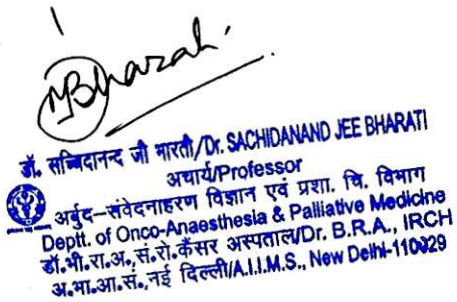 Bharati.
डॉ. सच्चिदानन्द जी भारती/Dr. SACHIDANAND JEE BHARATI
अचार्य/Professor
अर्बुद-संवेदनाहरण विज्ञान एवं प्रशा. चि. विभाग
Deptt. of Onco-Anaesthesia & Palliative Medicine
डॉ.भी.रा.अ.सं.रो.कैंसर अस्पताल/Dr. B.R.A., IRCH
अ.भा.आ.सं.,नई दिल्ली/A.I.I.M.S., New Delhi-110029